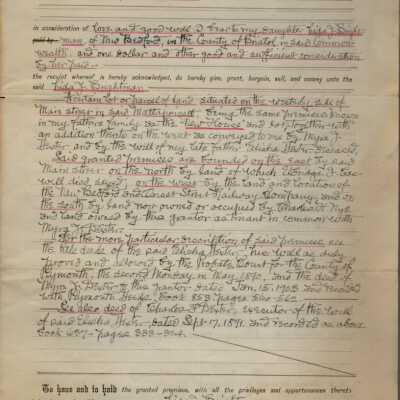 in consideration of love and good will I bear to my daughter
of New Bedford, in the County of Bristol, in said Common-
wealth, and one dollar and other good and sufficient consideration
by her paid
the receipt whereof is hereby acknowledged, do hereby give, grant, bargain, sell, and convey unto the
said
A certain lot or parcel of land situated on the westerly side of
Main street in said Mattapoisett, being the same premises known
in my father's family as the New House and lot, together with
an addition thereto on the west as conveyed to me by Myra
and by the will of my late father, Elisha deceased.
Said granted premises are bounded on the East by said
Main street, on the north by land of which George
well died, seized, on the west by the land and location of
the New Bedford and Onset Street Railway Company, and on
the south by land now owned or occupied by
and land owned by this grantor as tenant in common with
Myra
For the more particular description of said premises, see
the title deeds of the said Elisha his will as duly
proved and allowed by the Probate Court for the County of
Plymouth, the second Monday in May, 1890, and the deed of
Myra to this grantor dated Jan. 15, 1903 and recorded
with Plymouth Deeds, Book 853 pages
See also deed of Charles executor of the will
of said Elisha dated Sept. 17, 1891, and recorded as above
Book pages
To have and to hold the granted premises, with all the privileges and appurtenances thereto